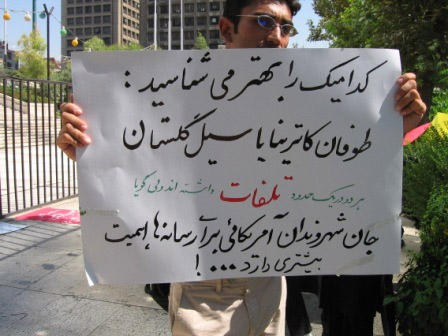 کدامیک را بهتر می شناسید :
طوفان کاترینا یا سیل گلستان
هر دو در یک حدود تلفات داشته اند ولی گویا
جان شهروندان آمریکائی برای رسانه ها اهمیت
بیشتری دارد...!